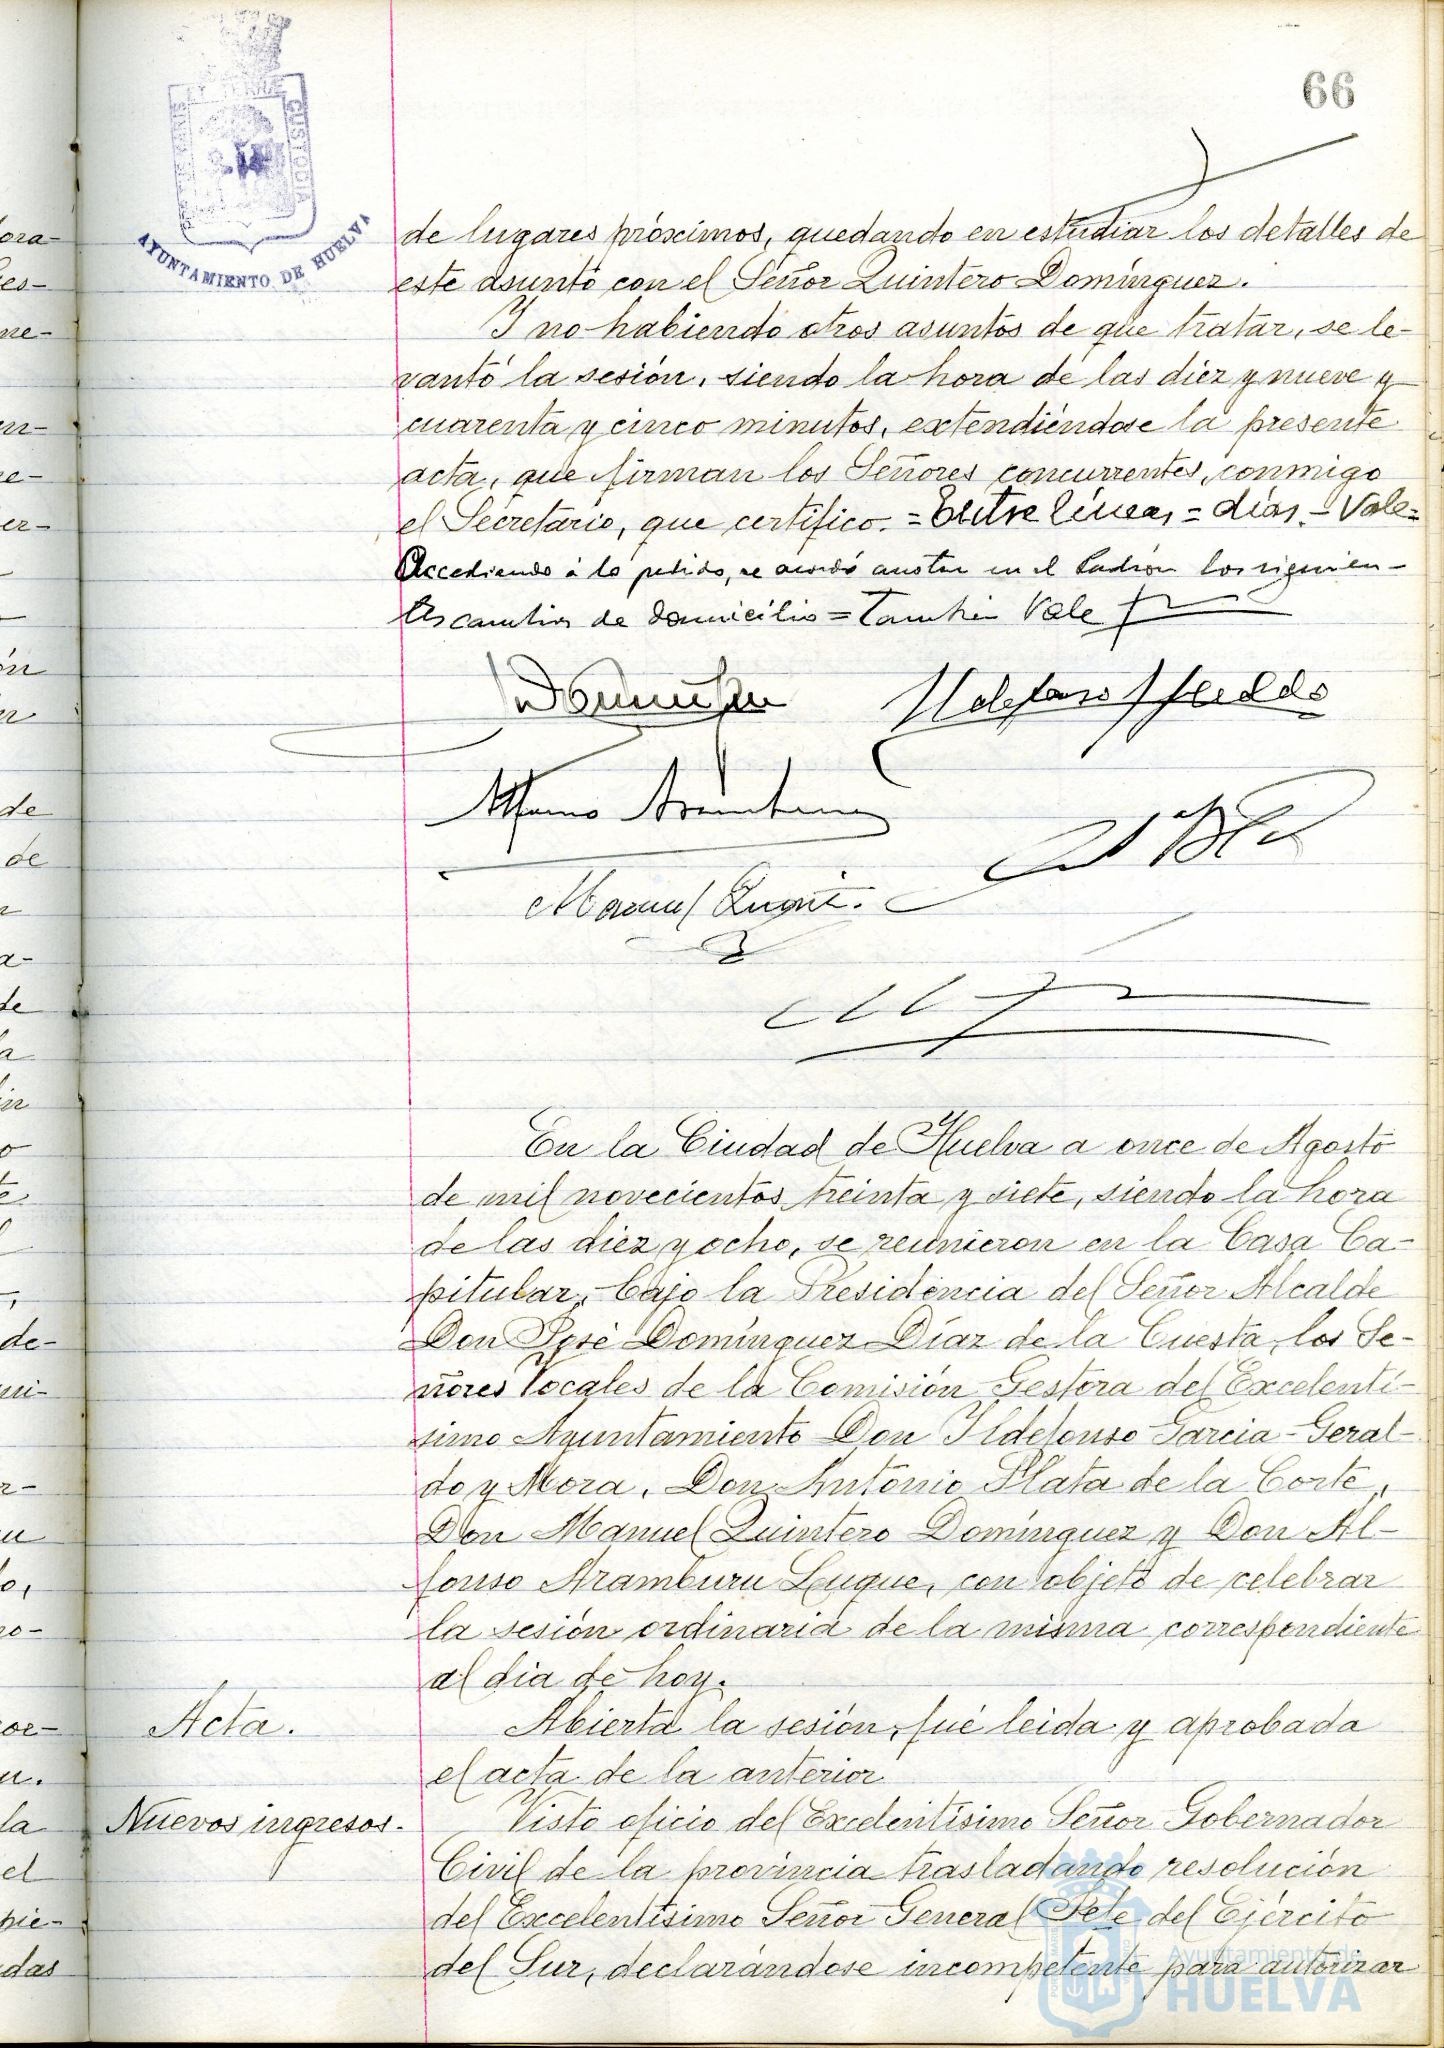 66
PORTUS MARIS ET TERRÆ CUSTODIA
AYUNTAMIENTO DE HUELVA
de lugares próximos, quedando en estudiar los detalles de
este asunto con el Señor Quintero Domínguez.
Y no habiendo otros asuntos de que tratar, se le-
vantó la sesión, siendo la hora de las diez y nueve y
cuarenta y cinco minutos, extendiéndose la presente
acta, que firman los Señores concurrentes, conmigo
el Secretario, que certifico. = Entre líneas = días = Vale =
Accediendo á lo pedido, se acordó anotar en el Padrón los siguien-
tes cambios de domicilio = También Vale
Alfonso Aramburu
Manuel Quint.
En la Ciudad de Huelva a once de Agosto
de mil novecientos treinta y siete, siendo la hora
de las diez y ocho, se reunieron en la Casa Ca-
pitular, bajo la Presidencia del Señor Alcalde
Don José Domínguez Díaz de la Cuesta, los Se-
ñores Vocales de la Comisión Gestora del Excelentí-
simo Ayuntamiento Don Ildefonso Garcia-Geral-
do y Mora, Don Antonio Plata de la Corte,
Don Manuel Quintero Domínguez y Don Al-
fonso Aramburu Luque, con objeto de celebrar
la sesión ordinaria de la misma correspondiente
al dia de hoy.
Acta.
Abierta la sesión, fué leida y aprobada
el acta de la anterior.
Nuevos ingresos.
Visto oficio del Excelentísimo Señor Gobernador
Civil de la provincia trasladando resolución
del Excelentísimo Señor General Jefe del Ejército
del Sur, declarándose incompetente para autorizar
Ayuntamiento de
HUELVA